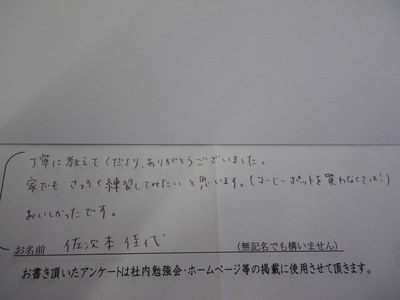 丁寧に教えてくださり、ありがとうございました。
家でも さっそく練習してみたいと思います。(コーヒーポットを買わなくては!)
おいしかったです。
お名前 佐次本 佳代 (無記名でも構いません)
お書き頂いたアンケートは社内勉強会・ホームページ等の掲載に使用させて頂きます。